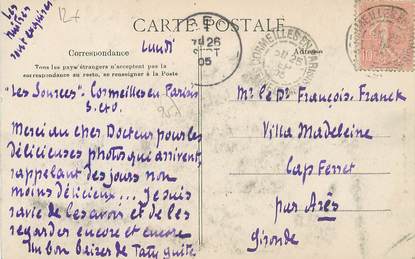 Les
huîtres
sont exquises
127
CARTE POSTALE
Correspondance
Adresse
Tous les pays étrangers n'acceptent pas la
correspondance au recto, se renseigner à la Poste
Lundi
26
05
CORMEILLES-EN-PARISIS
25
05
"Les Sources" - Cormeilles en Parisis
S. et O.
Merci au cher Docteur pour les
délicieuses photos qui arrivent,
rappelant des jours non
moins délicieux... Je suis
ravie de les avoir et de les
regarder encore et encore
Un bon baiser de Taty
Mr le Dr François-Franck
Villa Madeleine
Cap Ferret
par Arès
Gironde